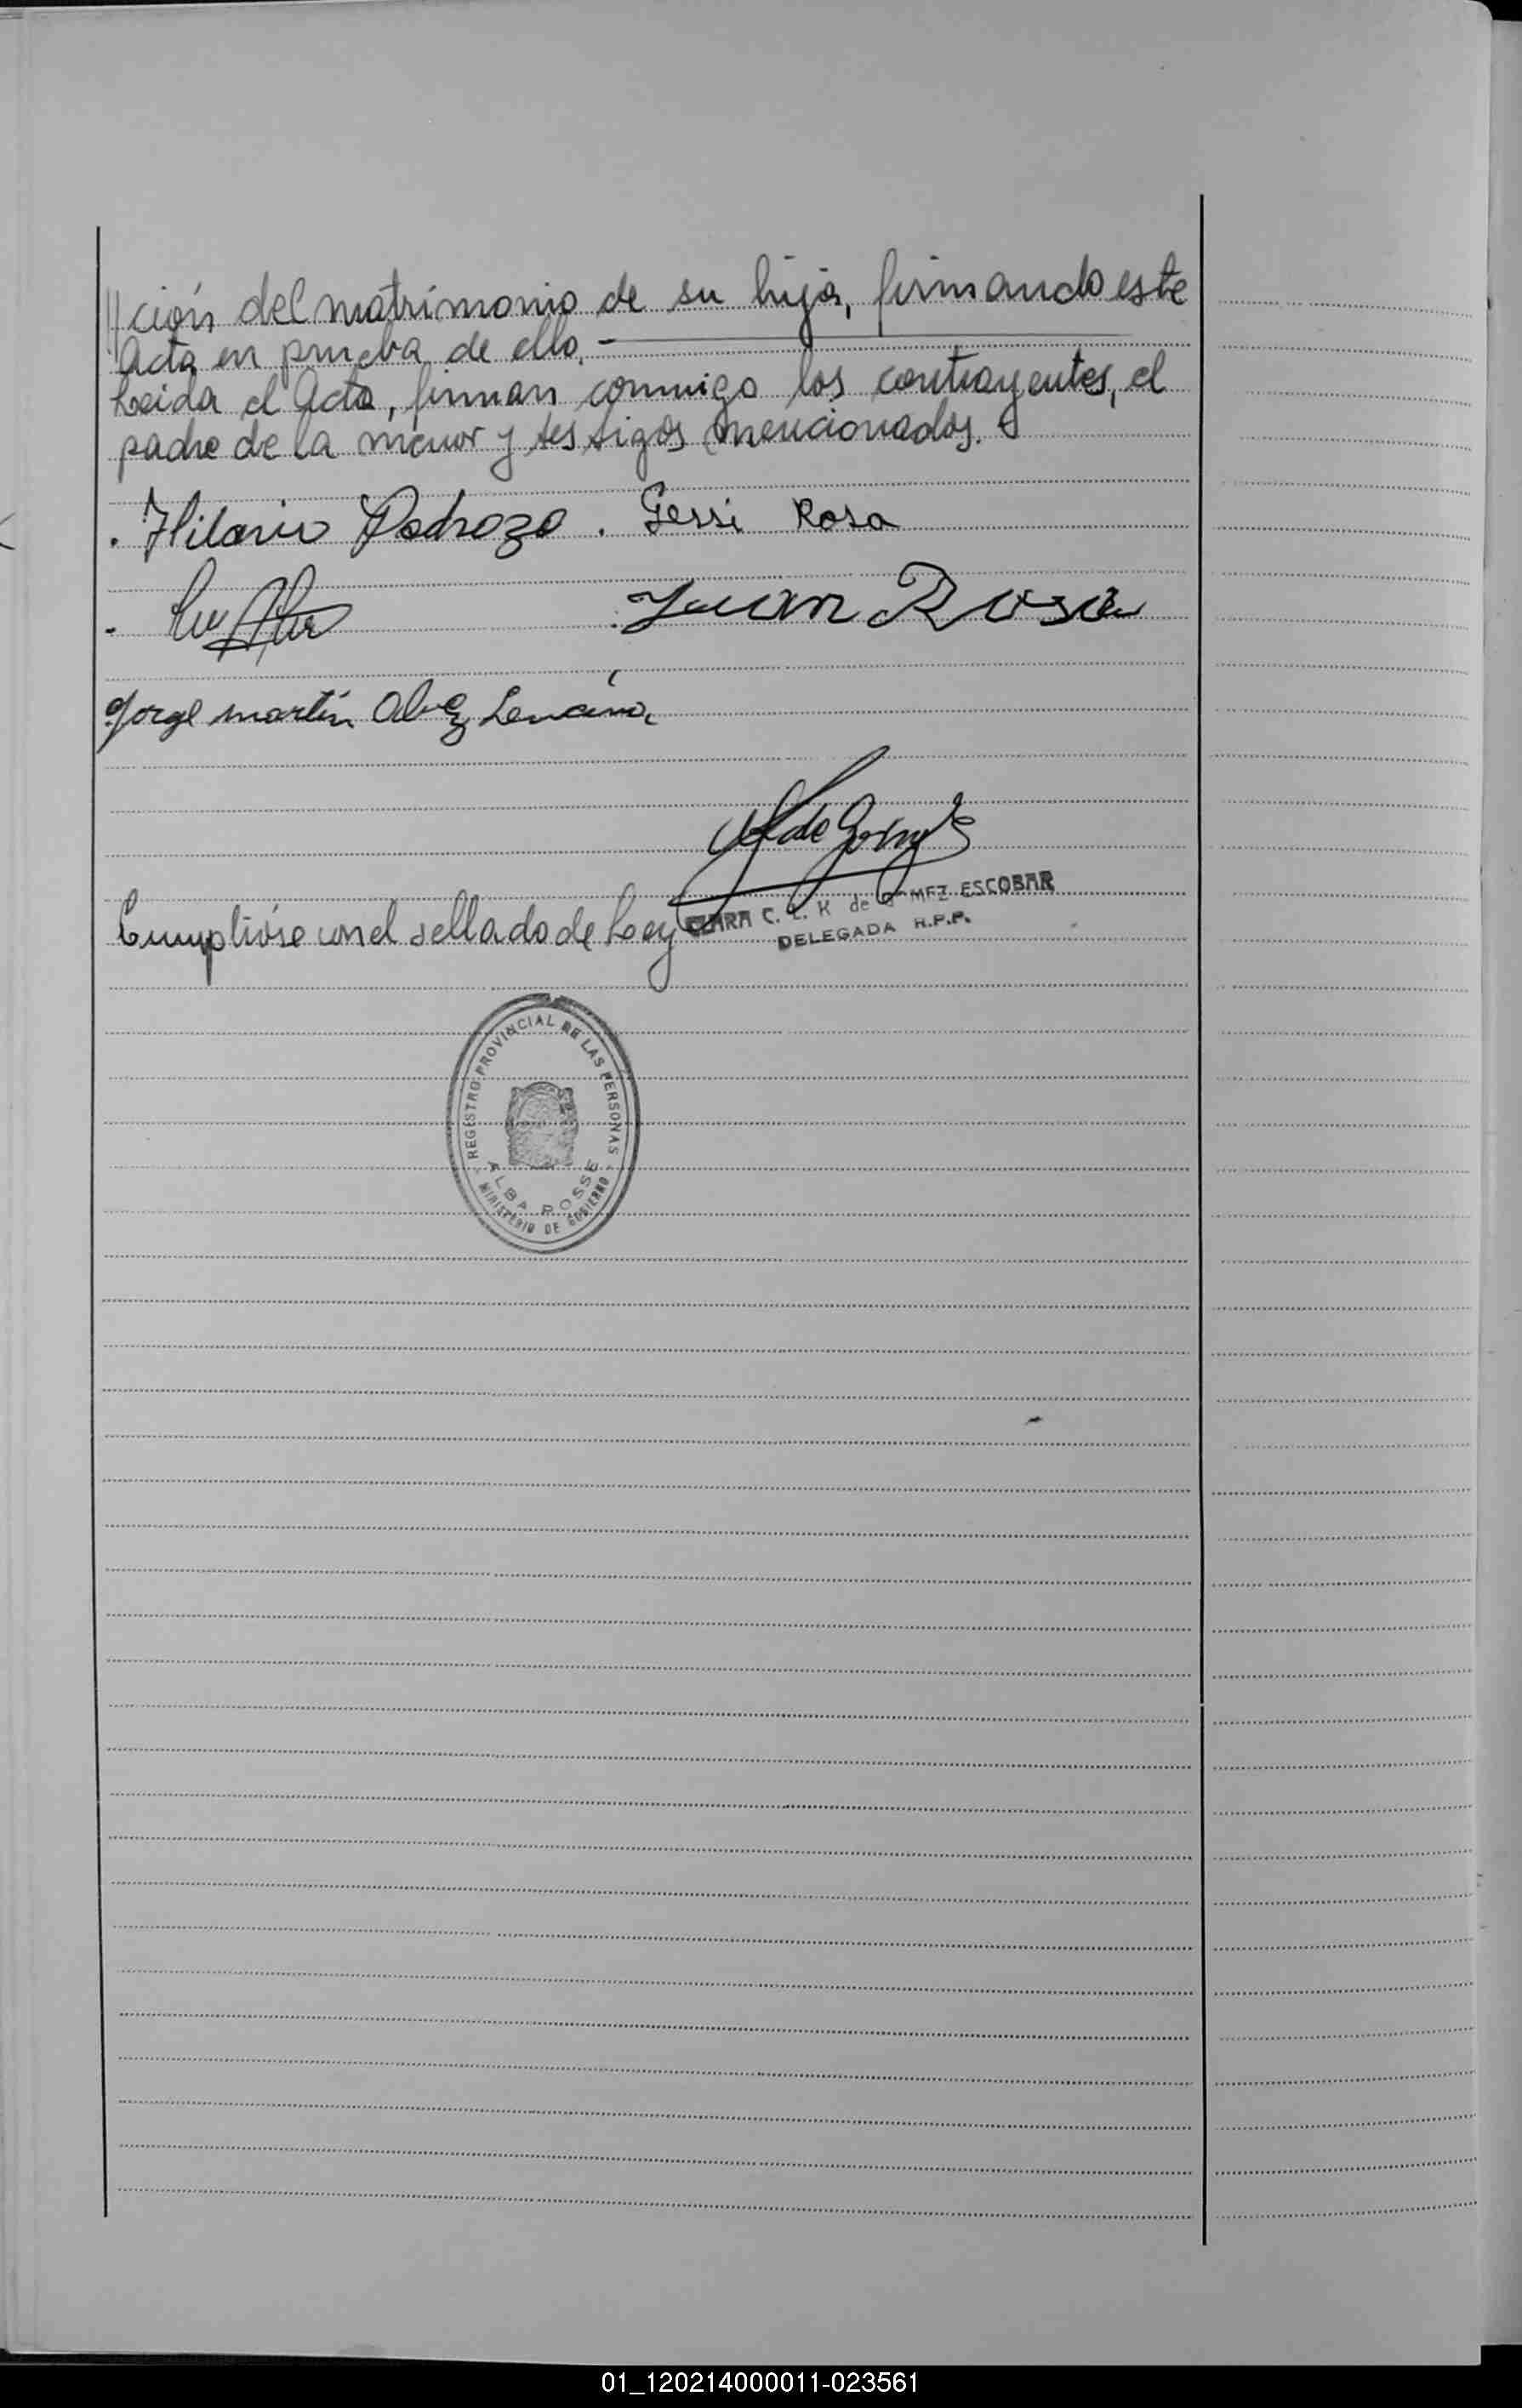 //ción del matrimonio de su hija, firmando este
Acta en prueba de ello.-
Leida el Acta, firman conmigo los contrayentes, el
padre de la menor y testigos mencionados.
. Hilario Pedrozo . Gessi Rosa
. Juan Rosa
Jorge martín Alvez Lencina
de Gomez
Cumplióse con el sellado de Ley
CLARA C. L. K de GOMEZ ESCOBAR
DELEGADA R.P.P.
REGISTRO PROVINCIAL DE LAS PERSONAS
ALBA POSSE
MINISTERIO DE GOBIERNO
01_120214000011-023561